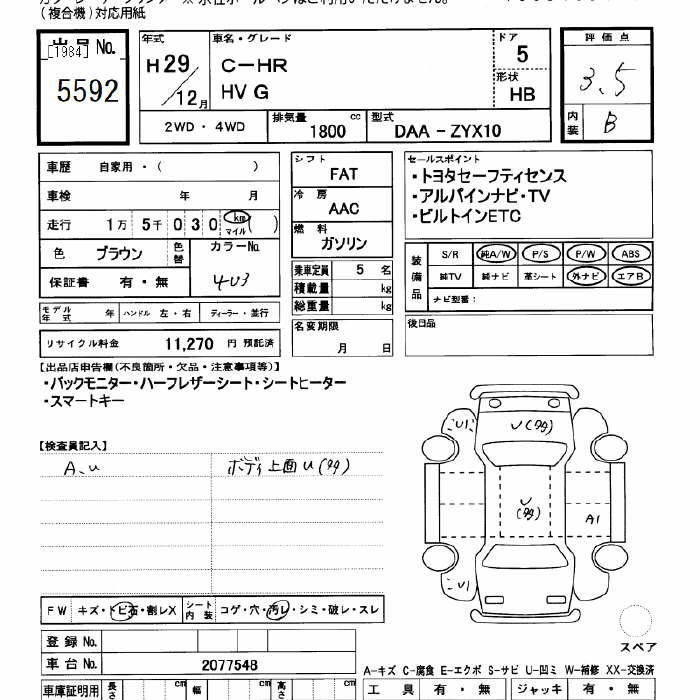 (複合機)対応用紙
出品 No.
[1984]
5592
年式
H29/12月
車名・グレード
C-HR
HV G
ドア
5
形状
HB
評価点
3.5
内装
B
2WD・4WD
排気量
1800 cc
型式
DAA-ZYX10
車歴 自家用・( )
車検 年 月
走行 1万 5千 0 3 0 km マイル ( )
色 ブラウン 色替 カラーNo. 4U3
保証書 有・無
モデル年式 年 ハンドル 左・右 ディーラー・並行
リサイクル料金 11,270 円 預託済
シフト
FAT
冷房
AAC
燃料
ガソリン
乗車定員 5 名
積載量 kg
総重量 kg
名変期限
月 日
セールスポイント
・トヨタセーフティセンス
・アルパインナビ・TV
・ビルトインETC
装備品
S/R 純A/W P/S P/W ABS
純TV 純ナビ 革シート 外ナビ エアB
ナビ型番:
後日品
【出品店申告欄(不良箇所・欠品・注意事項等)】
・バックモニター・ハーフレザーシート・シートヒーター
・スマートキー
【検査員記入】
A、U
ボディ上面U(多)
U1
U(多)
U(多)
A1
U1
FW キズ・トビ石・割レX シート内装 コゲ・穴・汚レ・シミ・破レ・スレ
登録 No.
車台 No. 2077548
スペア
A-キズ C-腐食 E-エクボ S-サビ U-凹ミ W-補修 XX-交換済
車庫証明用 長さ cm 幅 cm 高さ cm
工具 有・無 ジャッキ 有・無